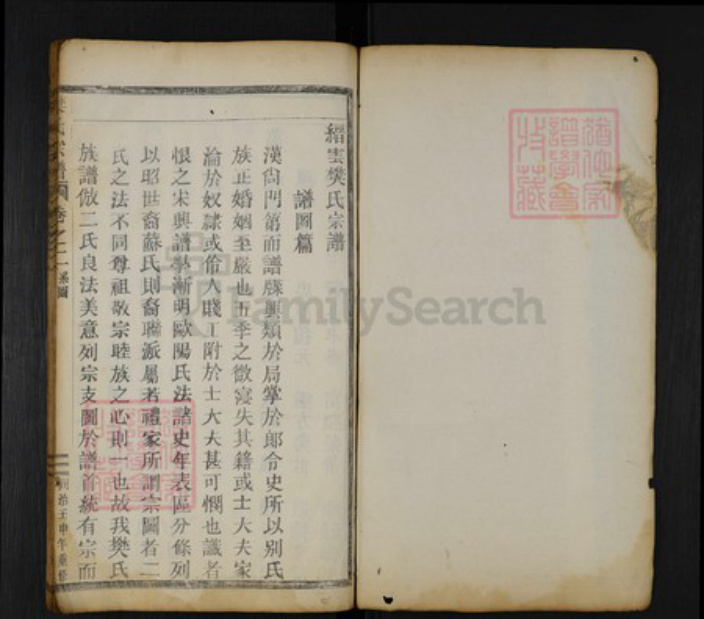 縉雲樊氏宗譜
譜圖篇
漢尙門第而譜牒興類於局掌於郞令史所以別氏
族正婚姻至嚴也五季之微寖失其籍或士大夫家
淪於奴隷或伧人賤工附於士大夫甚可憫也識者
恨之宋興譜學漸明歐陽氏法諸史年表區分條列
以昭世裔蘇氏則裔聯派屬若禮家所謂宗圖者二
氏之法不同尊祖敬宗睦族之心則一也故我樊氏
族譜倣二氏良法美意列宗支圖於譜首統有宗而
樊氏宗譜 卷之二 系圖
同治壬申年重修
譜學會
收藏
FamilySearch